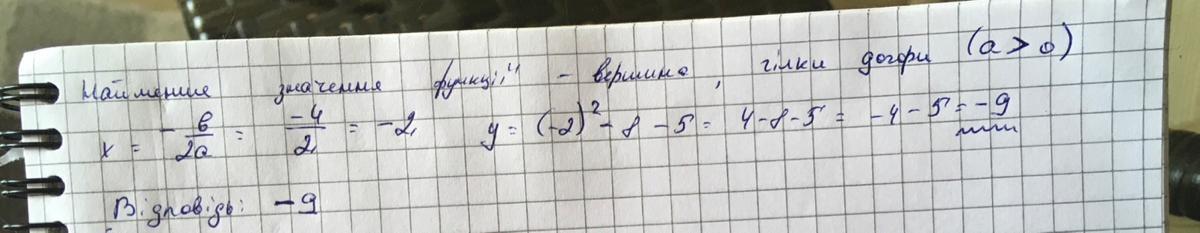 Найменше значення функції - вершина, гілки догори (a > 0)
x = -b/2a = -4/2 = -2, y = (-2)² - 8 - 5 = 4 - 8 - 5 = -4 - 5 = -9
Відповідь: -9